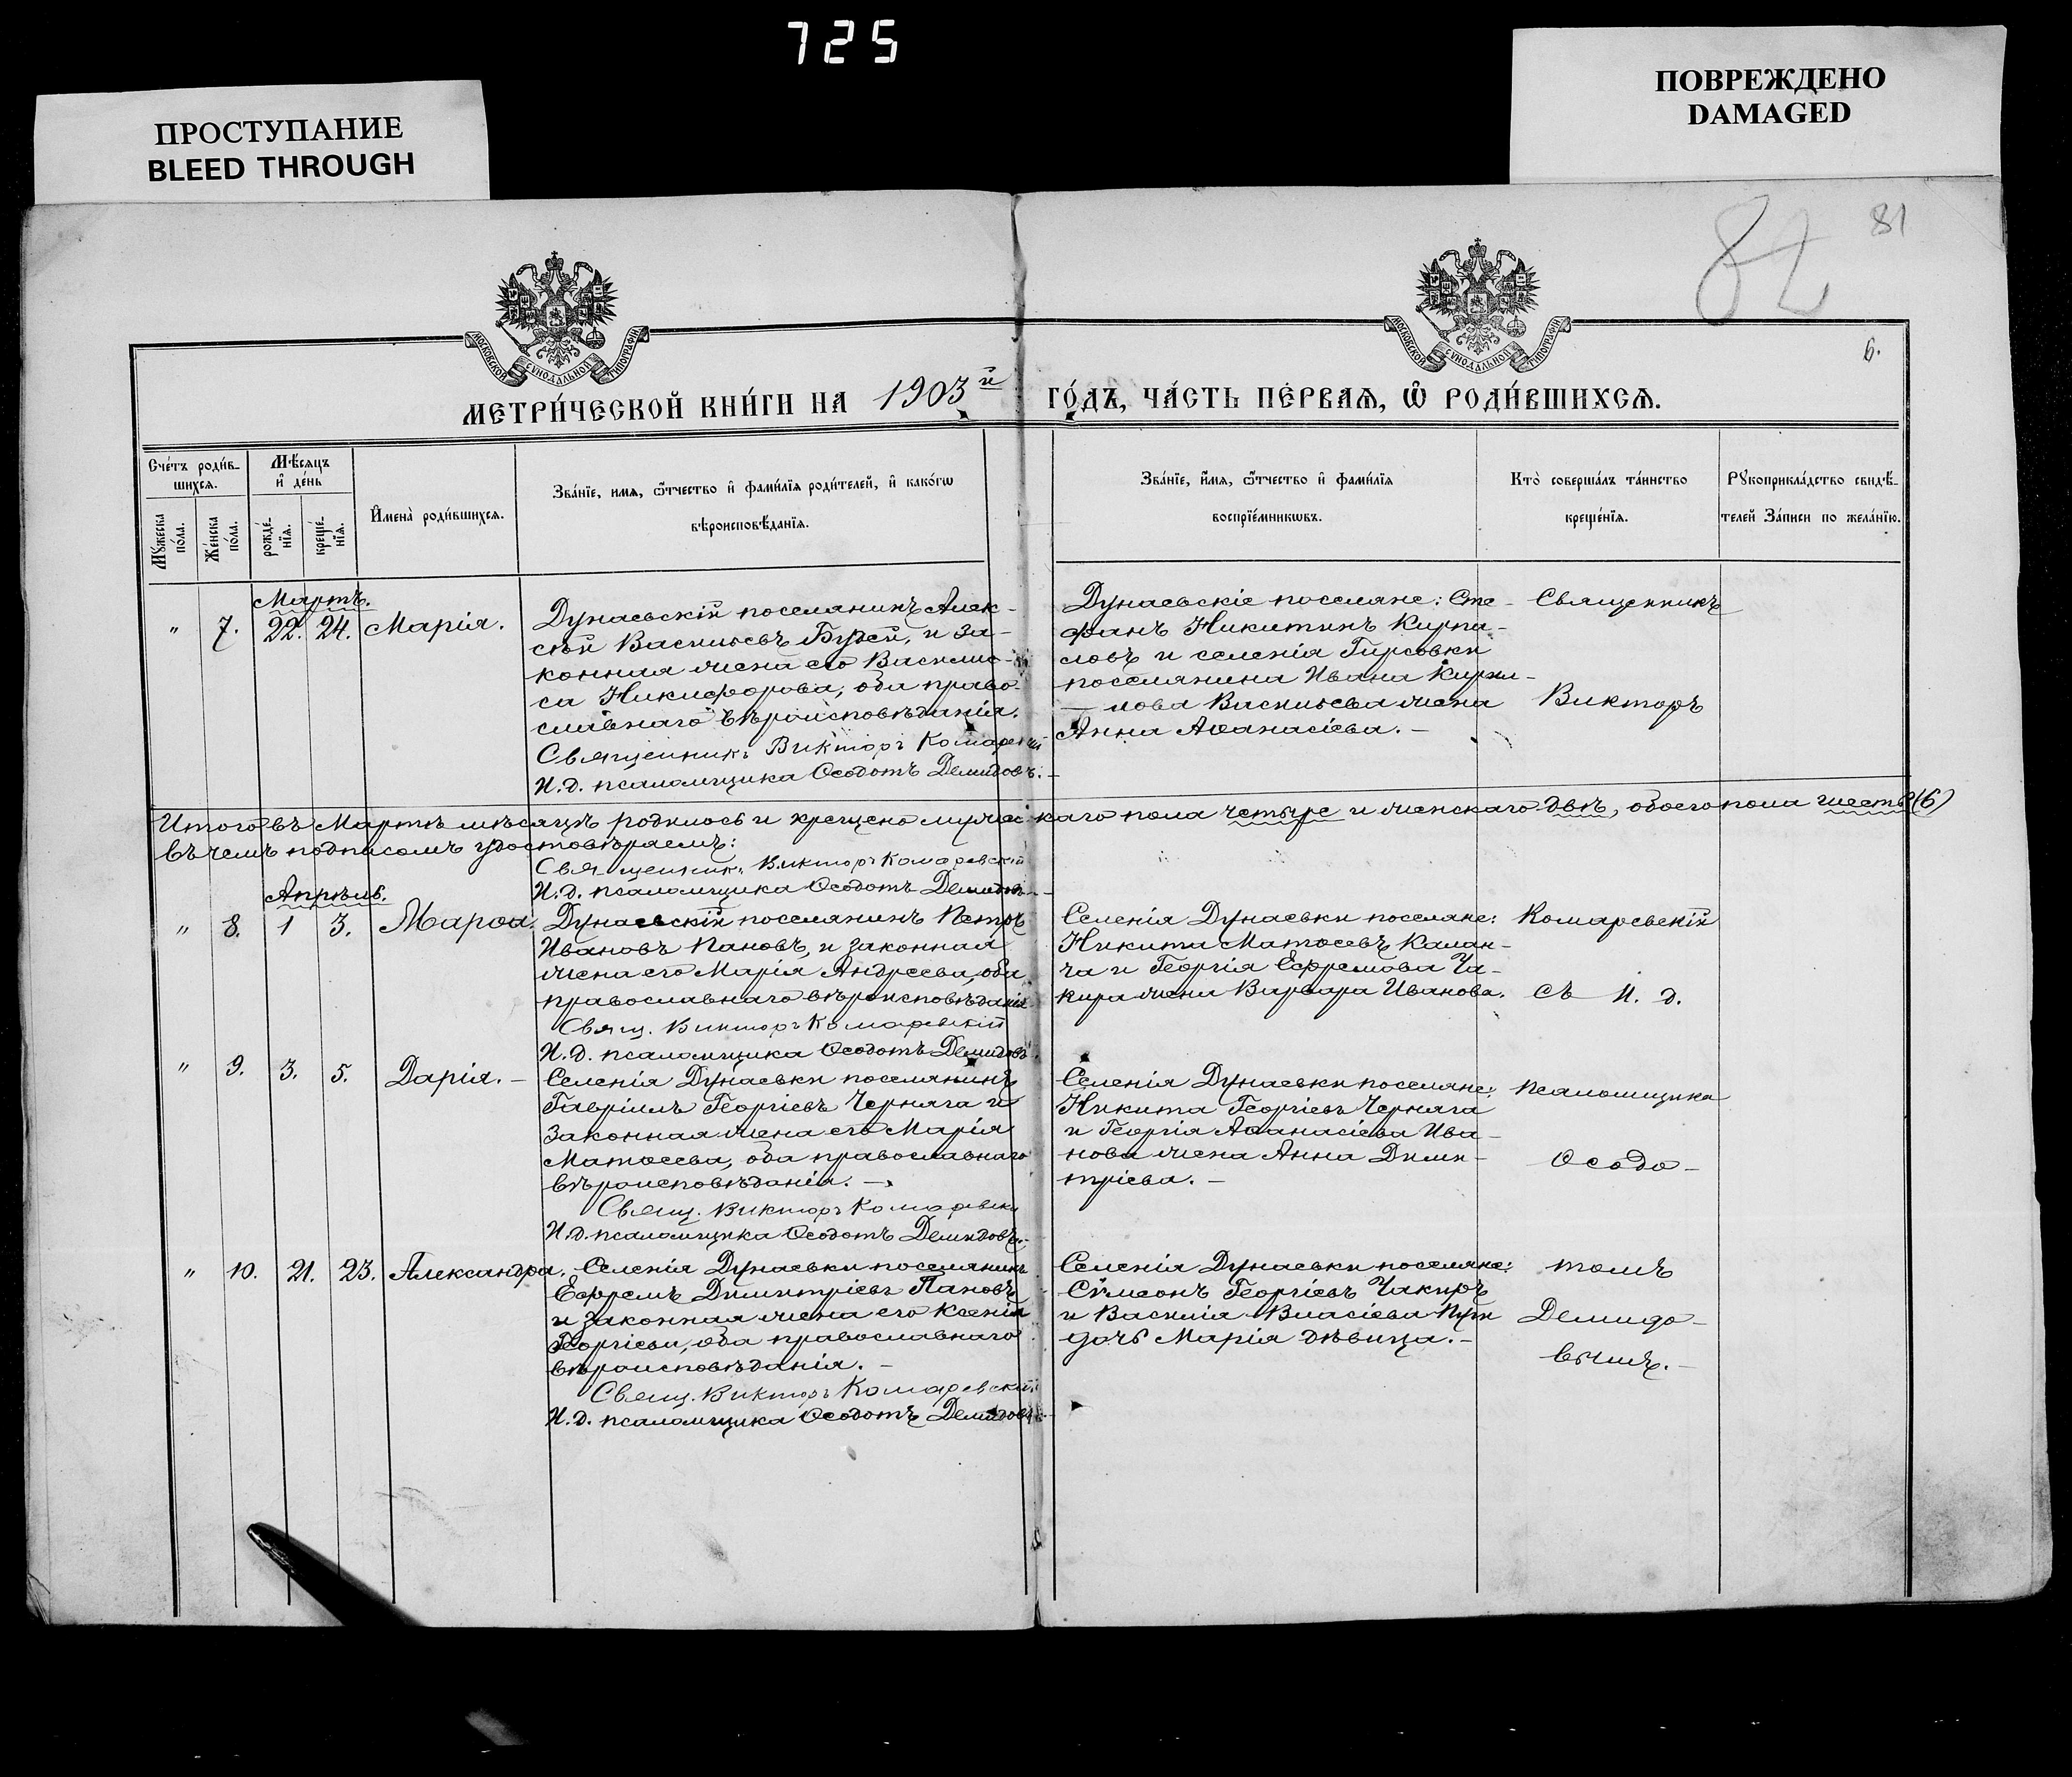 725
ПРОСТУПАНИЕ
BLEED THROUGH
ПОВРЕЖДЕНО
DAMAGED
82
81
6.
МОСКОВСКОЙ СѴНОДАЛЬНОЙ ТИПОГРАФІИ
МОСКОВСКОЙ СѴНОДАЛЬНОЙ ТИПОГРАФІИ
МЕТРИ́ЧЕСКОЙ КНИ́ГИ НА 1903й ГО́ДЪ, ЧА́СТЬ ПЕ́РВАѦ, Ѡ҆ РОДИ́ВШИХСѦ.
Сче́тъ роди́в-
шихсѧ.
Мꙋ́жеска по́ла.
Же́нска по́ла.
Мѣ́сѧцъ
и҆ де́нь
рожде́-
нїѧ.
креще́-
нїѧ.
И҆мена̀ роди́вшихсѧ.
Зва́нїе, имѧ, ѻ҆́тчество и҆ фами́лїѧ роди́телей, и҆ како́гѡ
вѣроисповѣ́данїѧ.
Зва́нїе, и҆́мѧ, ѻ҆́тчество и҆ фами́лїѧ
воспрїе́мникѡвъ.
Кто̀ соверша́лъ та́инство
креще́нїѧ.
Рꙋкоприкла́дство свидѣ́-
телей За́писи по жела́нїю.
Мартъ.
" 7. 22. 24. Марія.
Дунаевскій поселянинъ Алек-
сѣй Васильевъ Бузей, и за-
конная жена его Васили-
са Никифорова, оба право-
славнаго вѣроисповѣданія.
Священникъ Викторъ Комаревскій
И.д. псаломщика Ѳеодотъ Демидовъ.-
Дунаевскіе поселяне: Сте-
фанъ Никитинъ Кирпи-
ловъ и селенія Гирсовки
поселянина Ивана
Васильева жена
Анна Аѳанасіева.-
Священникъ
Викторъ
Итого въ Мартѣ мѣсяцѣ родилось и крещено мужескаго пола четыре и женскаго двѣ, обоего пола шесть (6)
въ чемъ подписомъ удостовѣряемъ:
Священникъ Викторъ Комаревскій
И.д. псаломщика Ѳеодотъ Демидовъ.-
Апрѣль.
" 8. 1 3. Марѳа.
Дунаевскій поселянинъ Петръ
Ивановъ Пановъ, и законная
жена его Марія Андреева, оба
православнаго вѣроисповѣданія
Свящ. Викторъ Комаревскій
И.д. псаломщика Ѳеодотъ Демидовъ.
Селенія Дунаевки поселяне:
Никита Матѳеевъ Калан-
ча и Георгія Ефремова Ча-
кира жена Варвара Иванова.
Комаревскій
съ И. д.
" 9. 3. 5. Дарія.-
Селенія Дунаевки поселянинъ
Гавріилъ Георгіевъ Черняга и
законная жена его Марія
Матѳеева, оба православнаго
вѣроисповѣданія.-
Свящ. Викторъ Комаревскій
И.д. псаломщика Ѳеодотъ Демидовъ.-
Селенія Дунаевки поселяне:
Никита Георгіевъ Черняга
и Георгія Аѳанасіева Ива-
нова жена Анна Дими-
тріева.-
псаломщика
Ѳеодо-
" 10. 21. 23. Александра.
Селенія Дунаевки поселянинъ
Ефремъ Димитріевъ Пановъ
и законная жена его Ксенія
Георгіева, оба православнаго
вѣроисповѣданія.-
Свящ. Викторъ Комаревскій
И.д. псаломщика Ѳеодотъ Демидовъ.-
Селенія Дунаевки поселяне:
Сѵмеонъ Георгіевъ Чакиръ
и Василія Власіева
дочь Марія дѣвица.-
томъ
Демидо-
вымъ.-